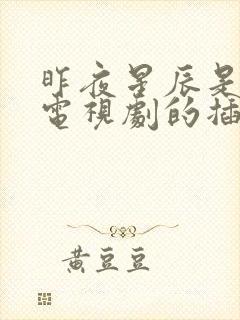 昨夜星辰是
電視劇的插
黃豆豆